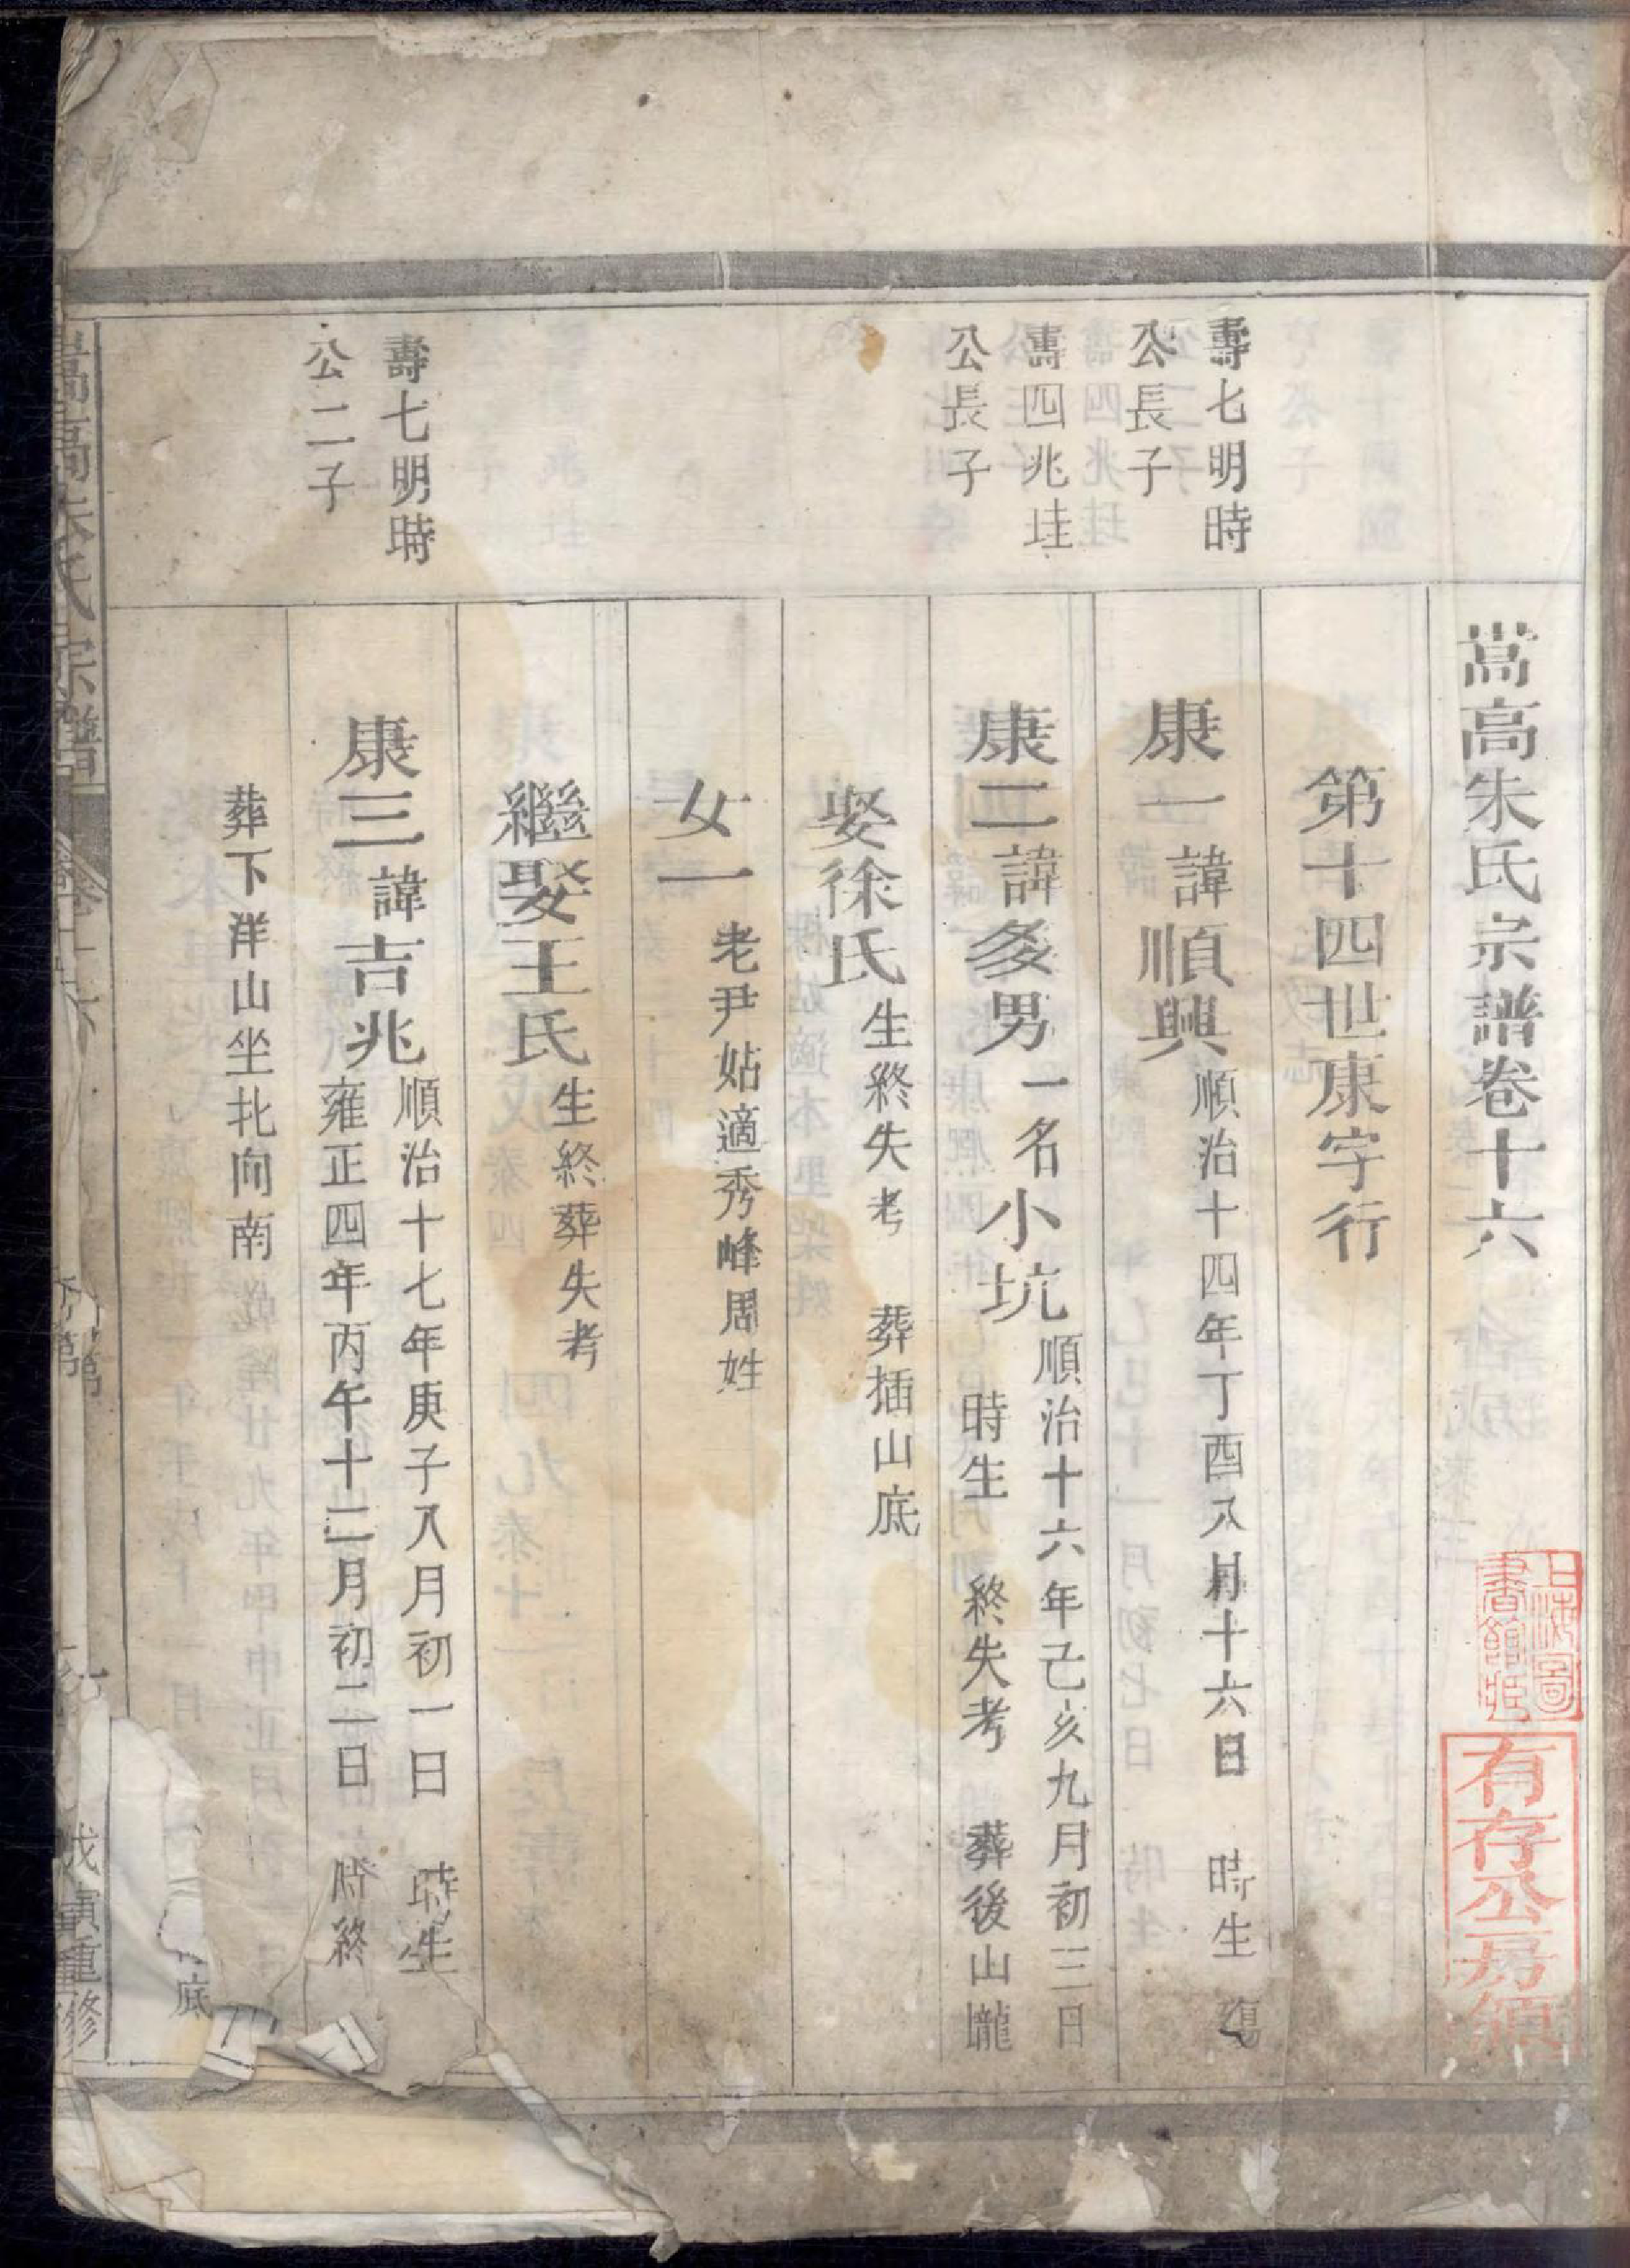 嵩高朱氏宗譜卷十六
上海圖書館藏
有存公房領
第十四世康字行
壽七明時
公長子
康一諱順興順治十四年丁酉八月十六日 時生 殤
壽四兆珪
公長子
康二諱多男一名小坑順治十六年己亥九月初三日
時生 終失考 葬後山巃
娶徐氏生終失考 葬插山底
女一老尹姑適秀峰周姓
繼娶王氏生終葬失考
壽七明時
公二子
康三諱吉兆順治十七年庚子八月初一日 時生
雍正四年丙午十二月初二日 時終
葬下洋山坐北向南
底
嵩高朱氏宗譜
卷十六
戊寅重修